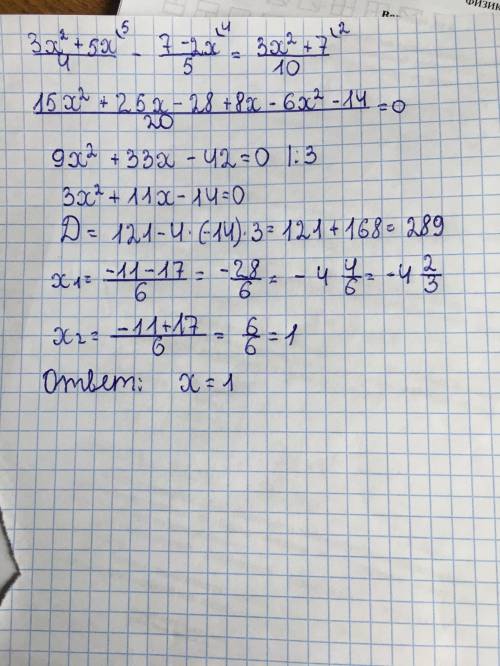 физик
(3x² + 5x)/4 \5 - (7 - 2x)/5 \4 = (3x² + 7)/10 \2
(15x² + 25x - 28 + 8x - 6x² - 14)/20 = 0
9x² + 33x - 42 = 0 |:3
3x² + 11x - 14 = 0
D = 121 - 4 · (-14) · 3 = 121 + 168 = 289
x₁ = (-11 - 17)/6 = -28/6 = -4 4/6 = -4 2/3
x₂ = (-11 + 17)/6 = 6/6 = 1
Ответ: x = 1